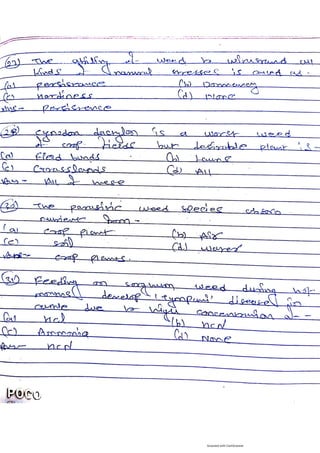 (27) The ability of weed to withstand all
kinds of natural stresses is called as.
(a) persistance (b) Dormancy
(c) hardiness (d) None
Ans - persistence
Cynodon dactylon is a worst weed
of crop fields but desirable plant is -
(a) Field bunds (b) Lawns
(c) Grasslands (d) All
Ans - All of these
The parasitic weed species obtain
nutrient from -
(a) crop plant (b) Air
(c) soil (d) Water
Ans - crop plants.
Feeding on sorghum weed during hot
develop 'tympani' disease in
cattle due to high concentration of -
(a) Hcl (b) HCN
(c) Ammonia (d) None
Ans - HCN
POCO
Scanned with CamScanner